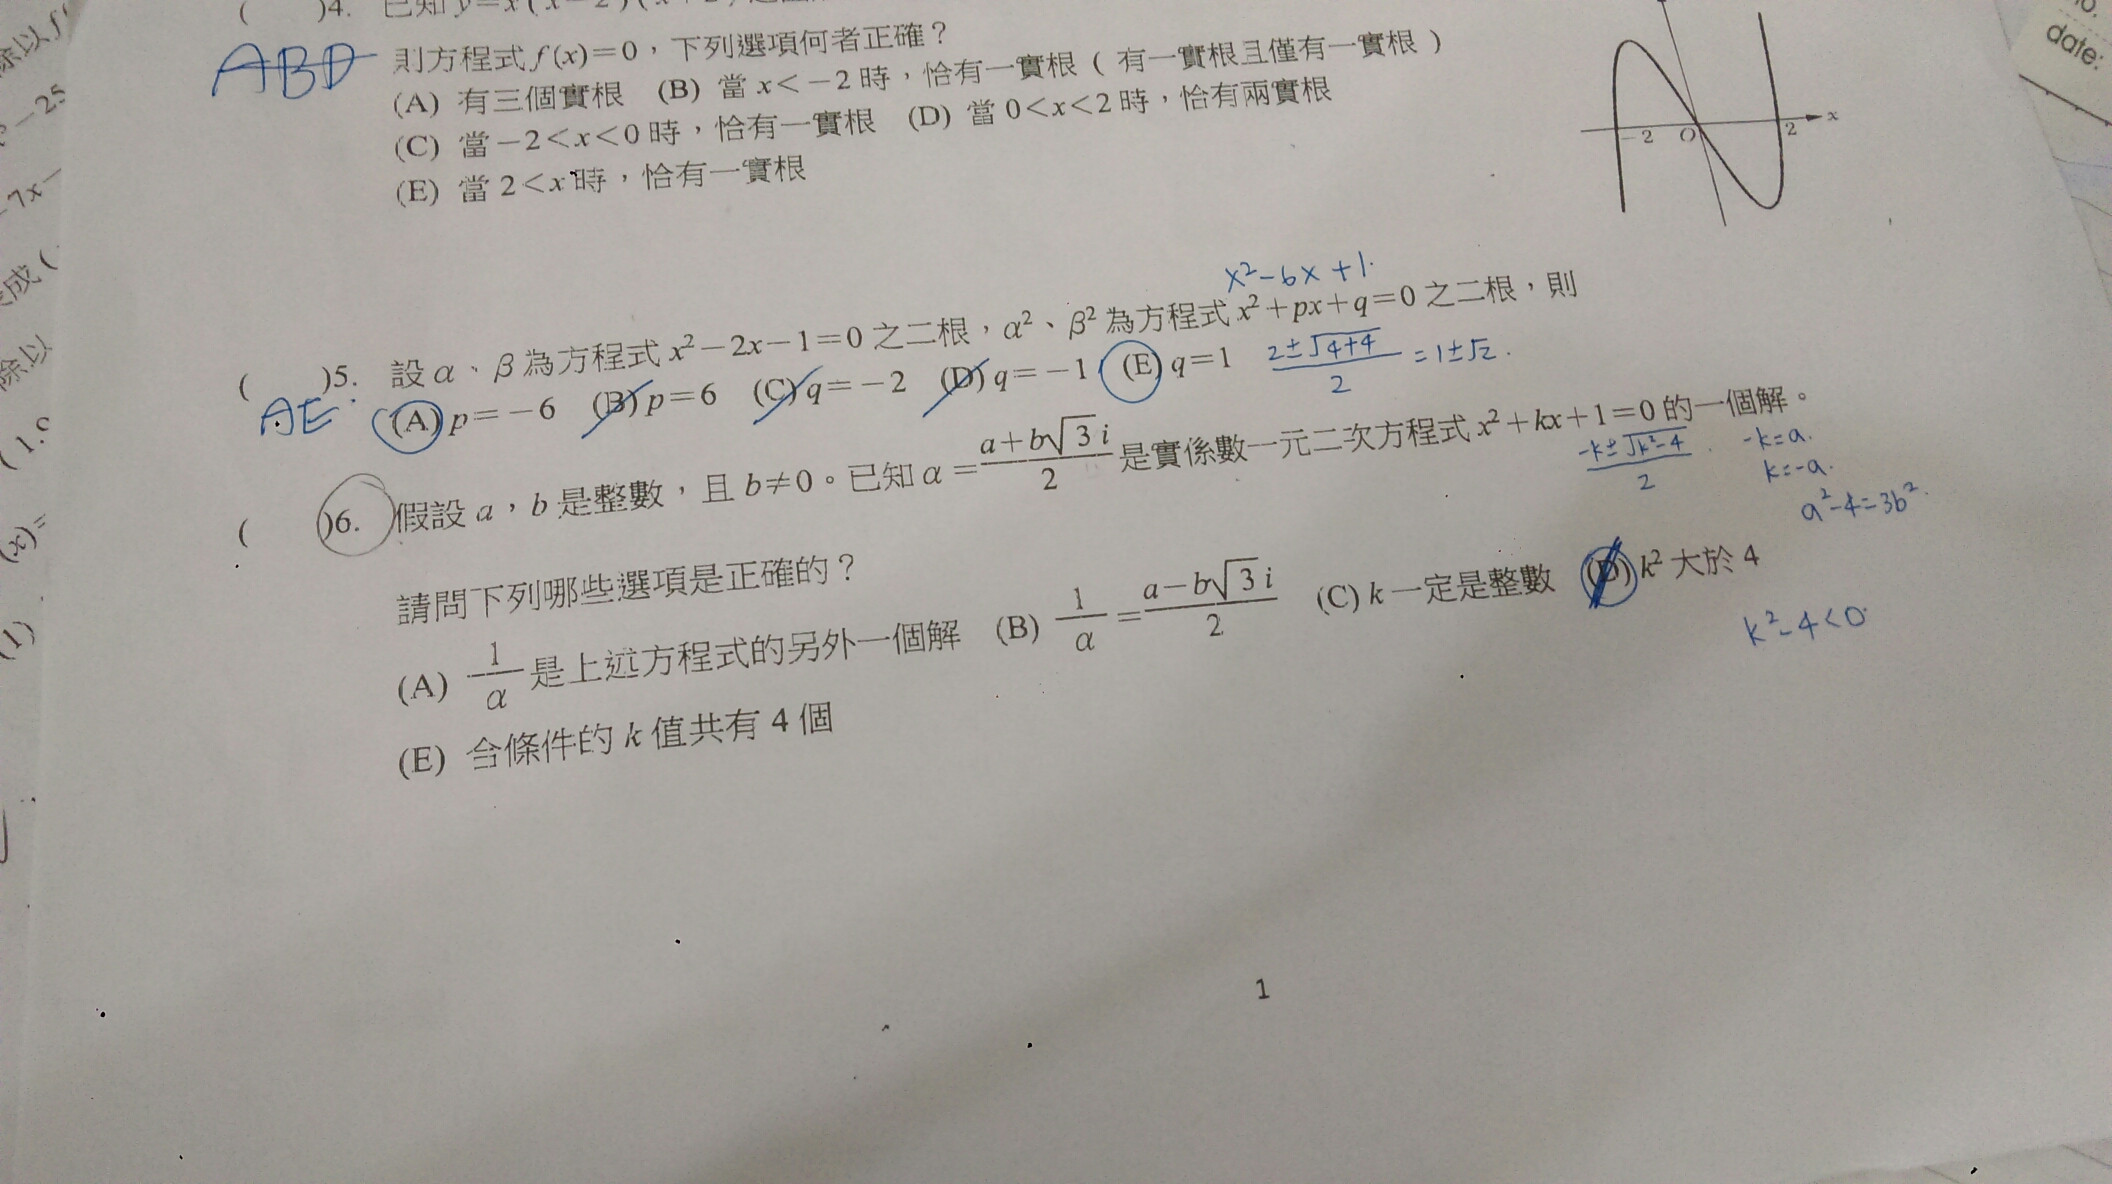 ( )4. 已知 y=x(x-2)(x+2)
ABD 則方程式 f(x)=0,下列選項何者正確?
(A) 有三個實根 (B) 當 x<-2 時,恰有一實根(有一實根且僅有一實根)
(C) 當 -2<x<0 時,恰有一實根 (D) 當 0<x<2 時,恰有兩實根
(E) 當 2<x 時,恰有一實根
-2 O 2 x
date:
x²-6x+1.
( )5. 設 α、β 為方程式 x²-2x-1=0 之二根,α²、β² 為方程式 x²+px+q=0 之二根,則
AE. (A) p=-6 (B) p=6 (C) q=-2 (D) q=-1 (E) q=1 (2±√(4+4))/2 = 1±√2.
( )6. 假設 a,b 是整數,且 b≠0。已知 α=(a+b√3 i)/2 是實係數一元二次方程式 x²+kx+1=0 的一個解。
(-k±√(k²-4))/2 . -k=a.
k=-a.
a²-4=3b².
請問下列哪些選項是正確的?
(A) 1/α 是上述方程式的另外一個解 (B) 1/α=(a-b√3 i)/2 (C) k 一定是整數 (D) k² 大於 4
k²-4<0
(E) 合條件的 k 值共有 4 個
1